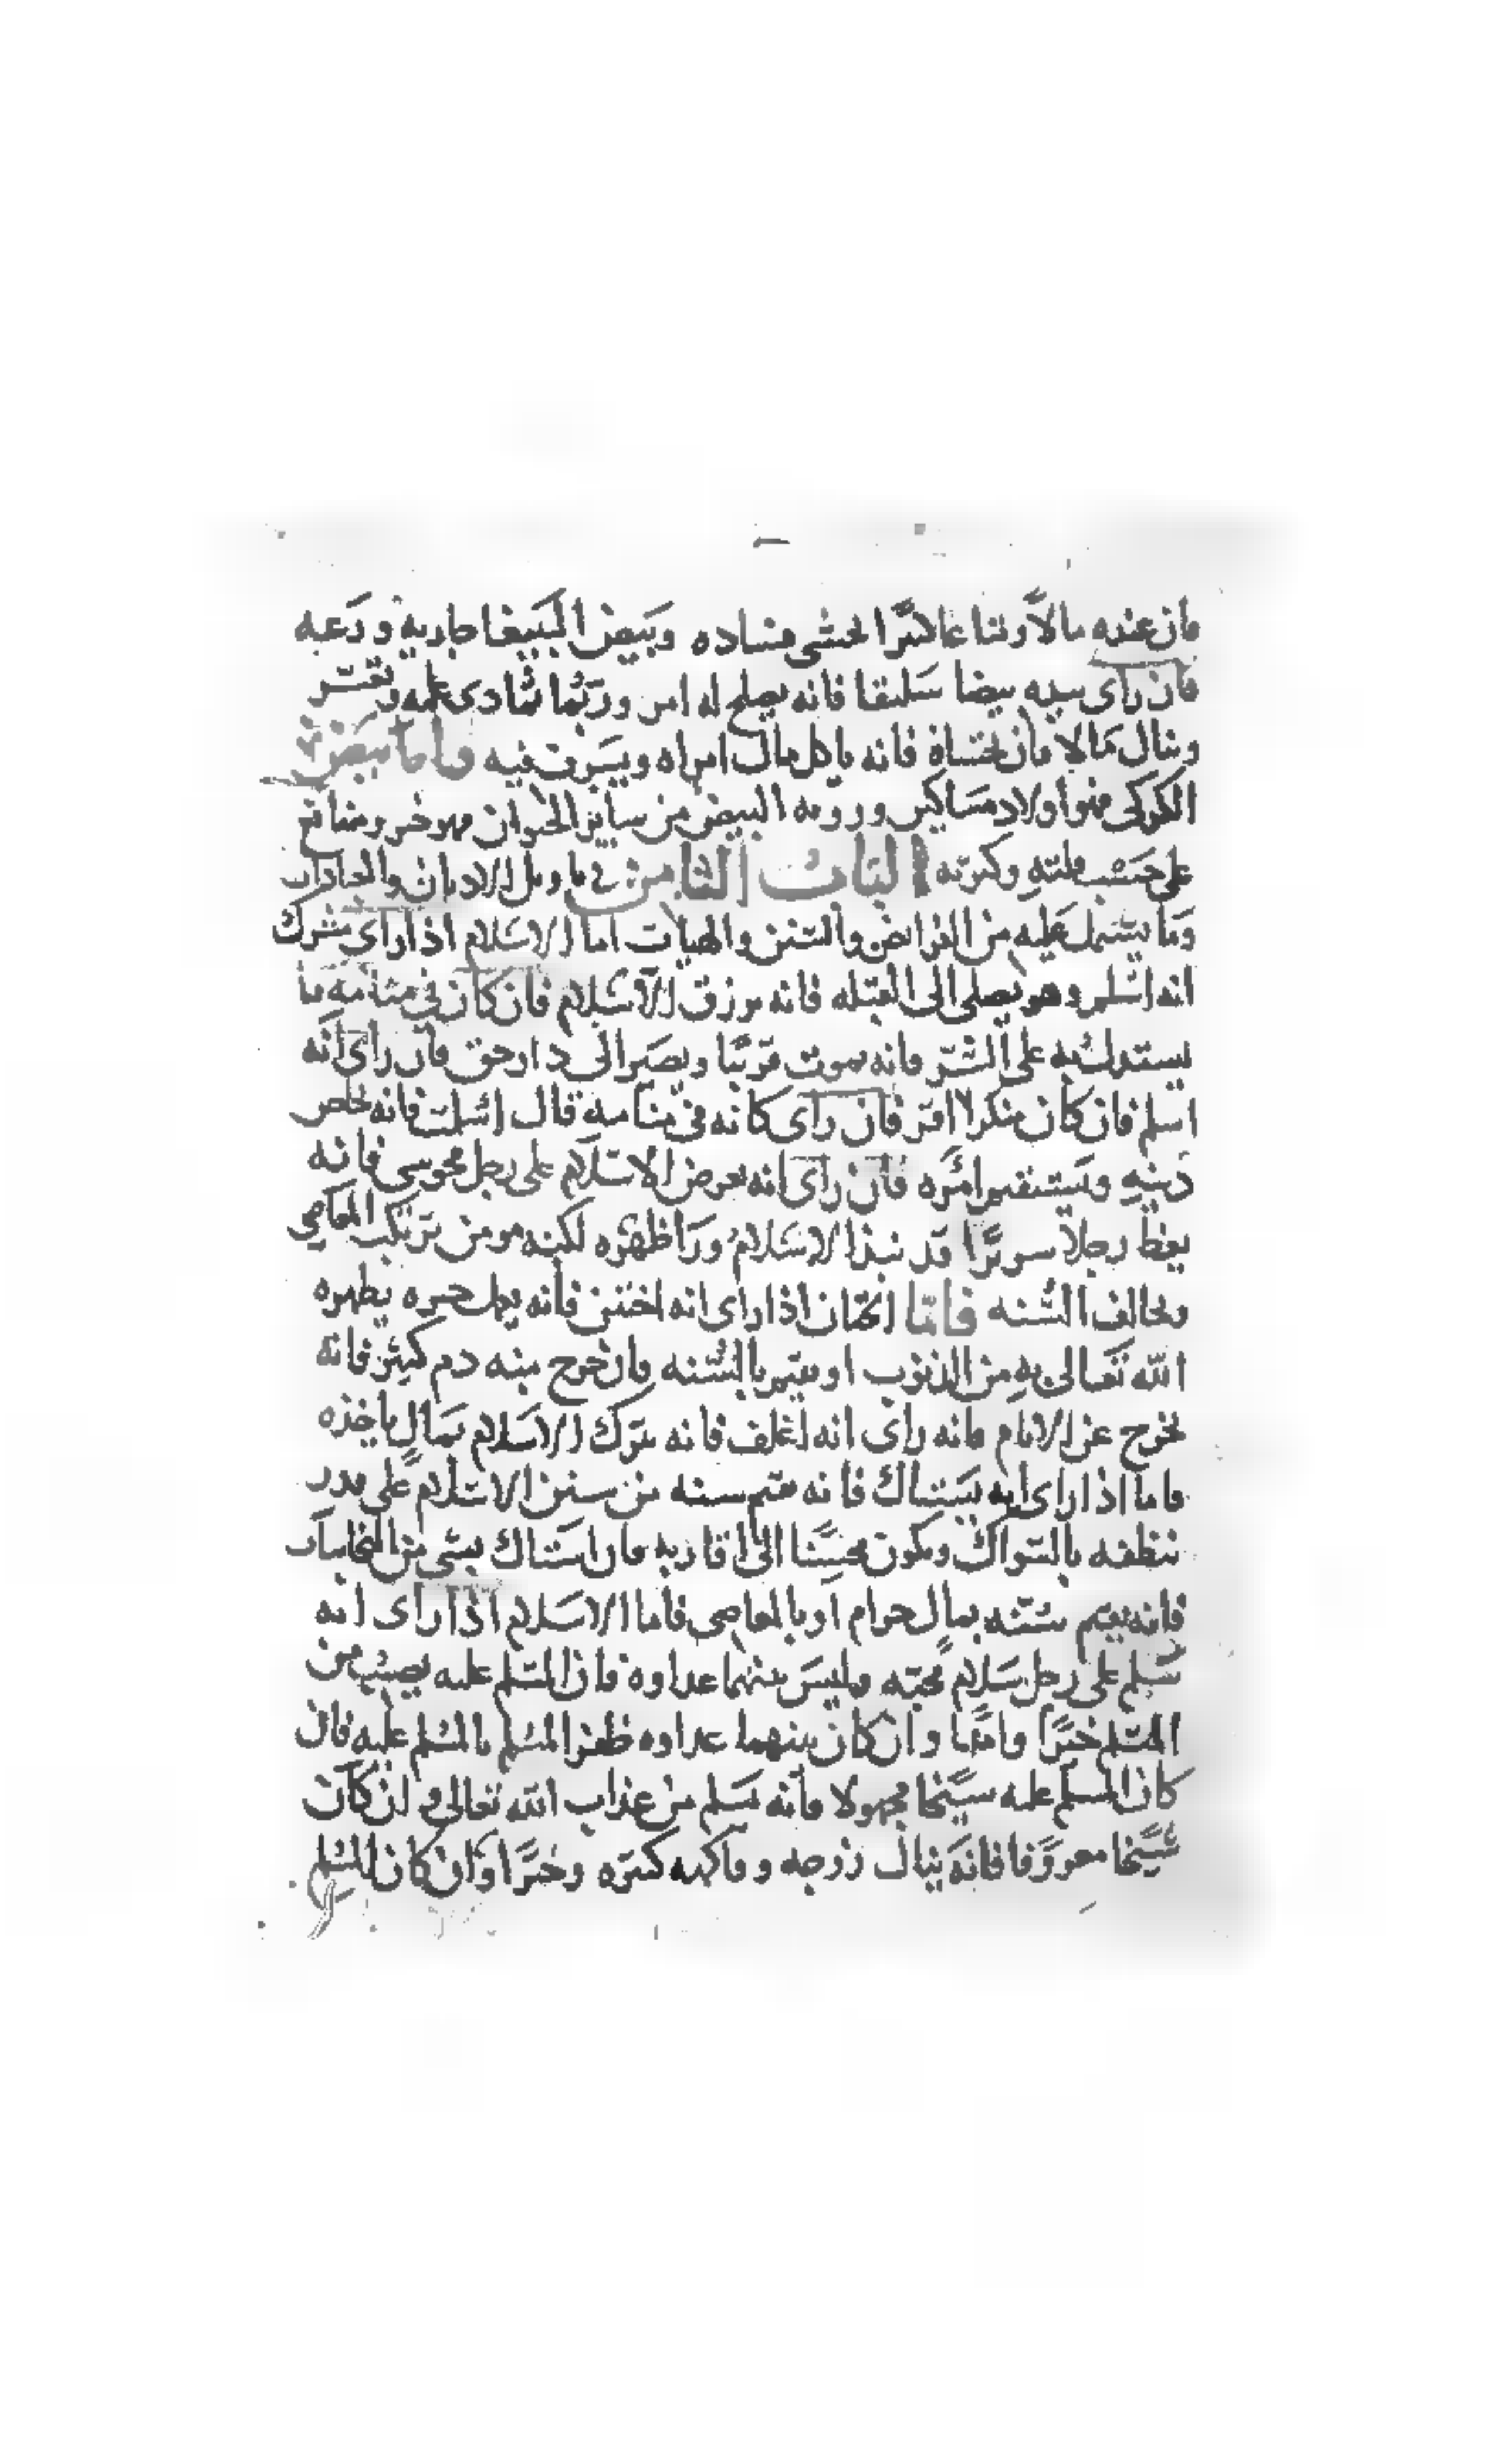 فان عنده مالا ومتاعا كثيرا يخشى فساده وبيض الببغا جاريه ورعه
فان رأى بيده بيضا سليقا فانه يصلح له امر وربما تمادى عليه وتعسر
وينال مالا فان تحساه فانه ياكل مال امراه ويسرف فيه واما بيض
الكركي فهو اولاد مساكين ورويه البيض من ساير الحيوان فهو خير ومنافع
على حسب قلته وكثرته الباب الثامن في تاويل الاديان والعبادات
وما يشتمل عليه من الفرايض والسنن والهيات اما الاسلام اذا راى مشرك
انه اسلم وهو يصلي الى القبله فانه يرزق الاسلام فان كان في منامه ما
يستدل به على الشر فانه يموت قريبا ويصير الى دار حق فان راى انه
اسلم فان كان منكرا اقر فان راى كانه في منامه قال اسلمت فانه يخلص
دينه ويستقيم امره فان راى انه يعرض الاسلام على رجل مجوسي فانه
يعظ رجلا قد نبذ الاسلام ورا ظهره لكنه مومن يرتكب المعاصي
ويخالف السنه فامّا الختان اذا راى انه اختتن فانه يعمل خيره يطهره
الله تعالى به من الذنوب او يقيم بالسنه فان خرج منه دم كثير فانه
يخرج عن الاثام فانه راى انه اغلف فانه يترك الاسلام بمال ياخذه
فاما اذا راى انه يستاك فانه يقيم سنه من سنن الاسلام على قدر
تنظفه بالسواك ويكون محسنا الى اقاربه فان استاك بشي من النجاسات
فانه يقيم سنته بمال حرام او بالمعاصي فاما الاسلام اذا راى انه
سلم على رجل سلام محبته وليس بينهما عداوه فان المسلم عليه يصيب من
المسلم خيرا وامنا وان كان بينهما عداوه ظفر المسلم بالمسلم عليه فان
كان المسلم عليه شيخا مجهولا فانه يسلم من عذاب الله تعالى وان كان
شيخا معروفا فانه ينال زوجه وفاكهه كثيره وخيرا وان كان المسلم